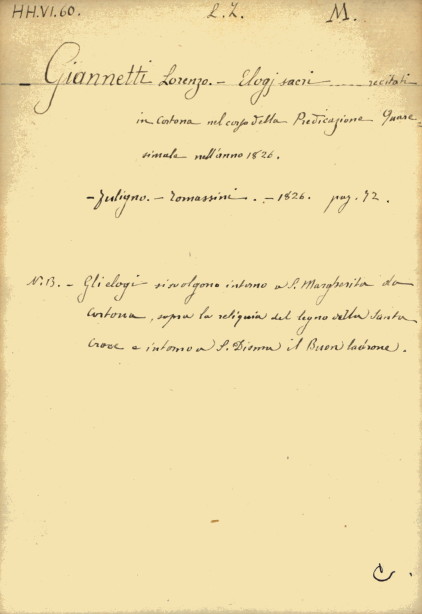 HH.VI.60. L.Z. M.
Giannetti Lorenzo. - Elogj sacri ..... recitati
in Cortona nel corso della Predicazione Quare=
simale nell'anno 1826.
- Fuligno. - Tomassini. - 1826. pag. 72.
N.B. - Gli elogi si svolgono intorno a S. Margherita da
Cortona, sopra la reliquia del legno della Santa
Croce e intorno a S. Disma il Buon ladrone.